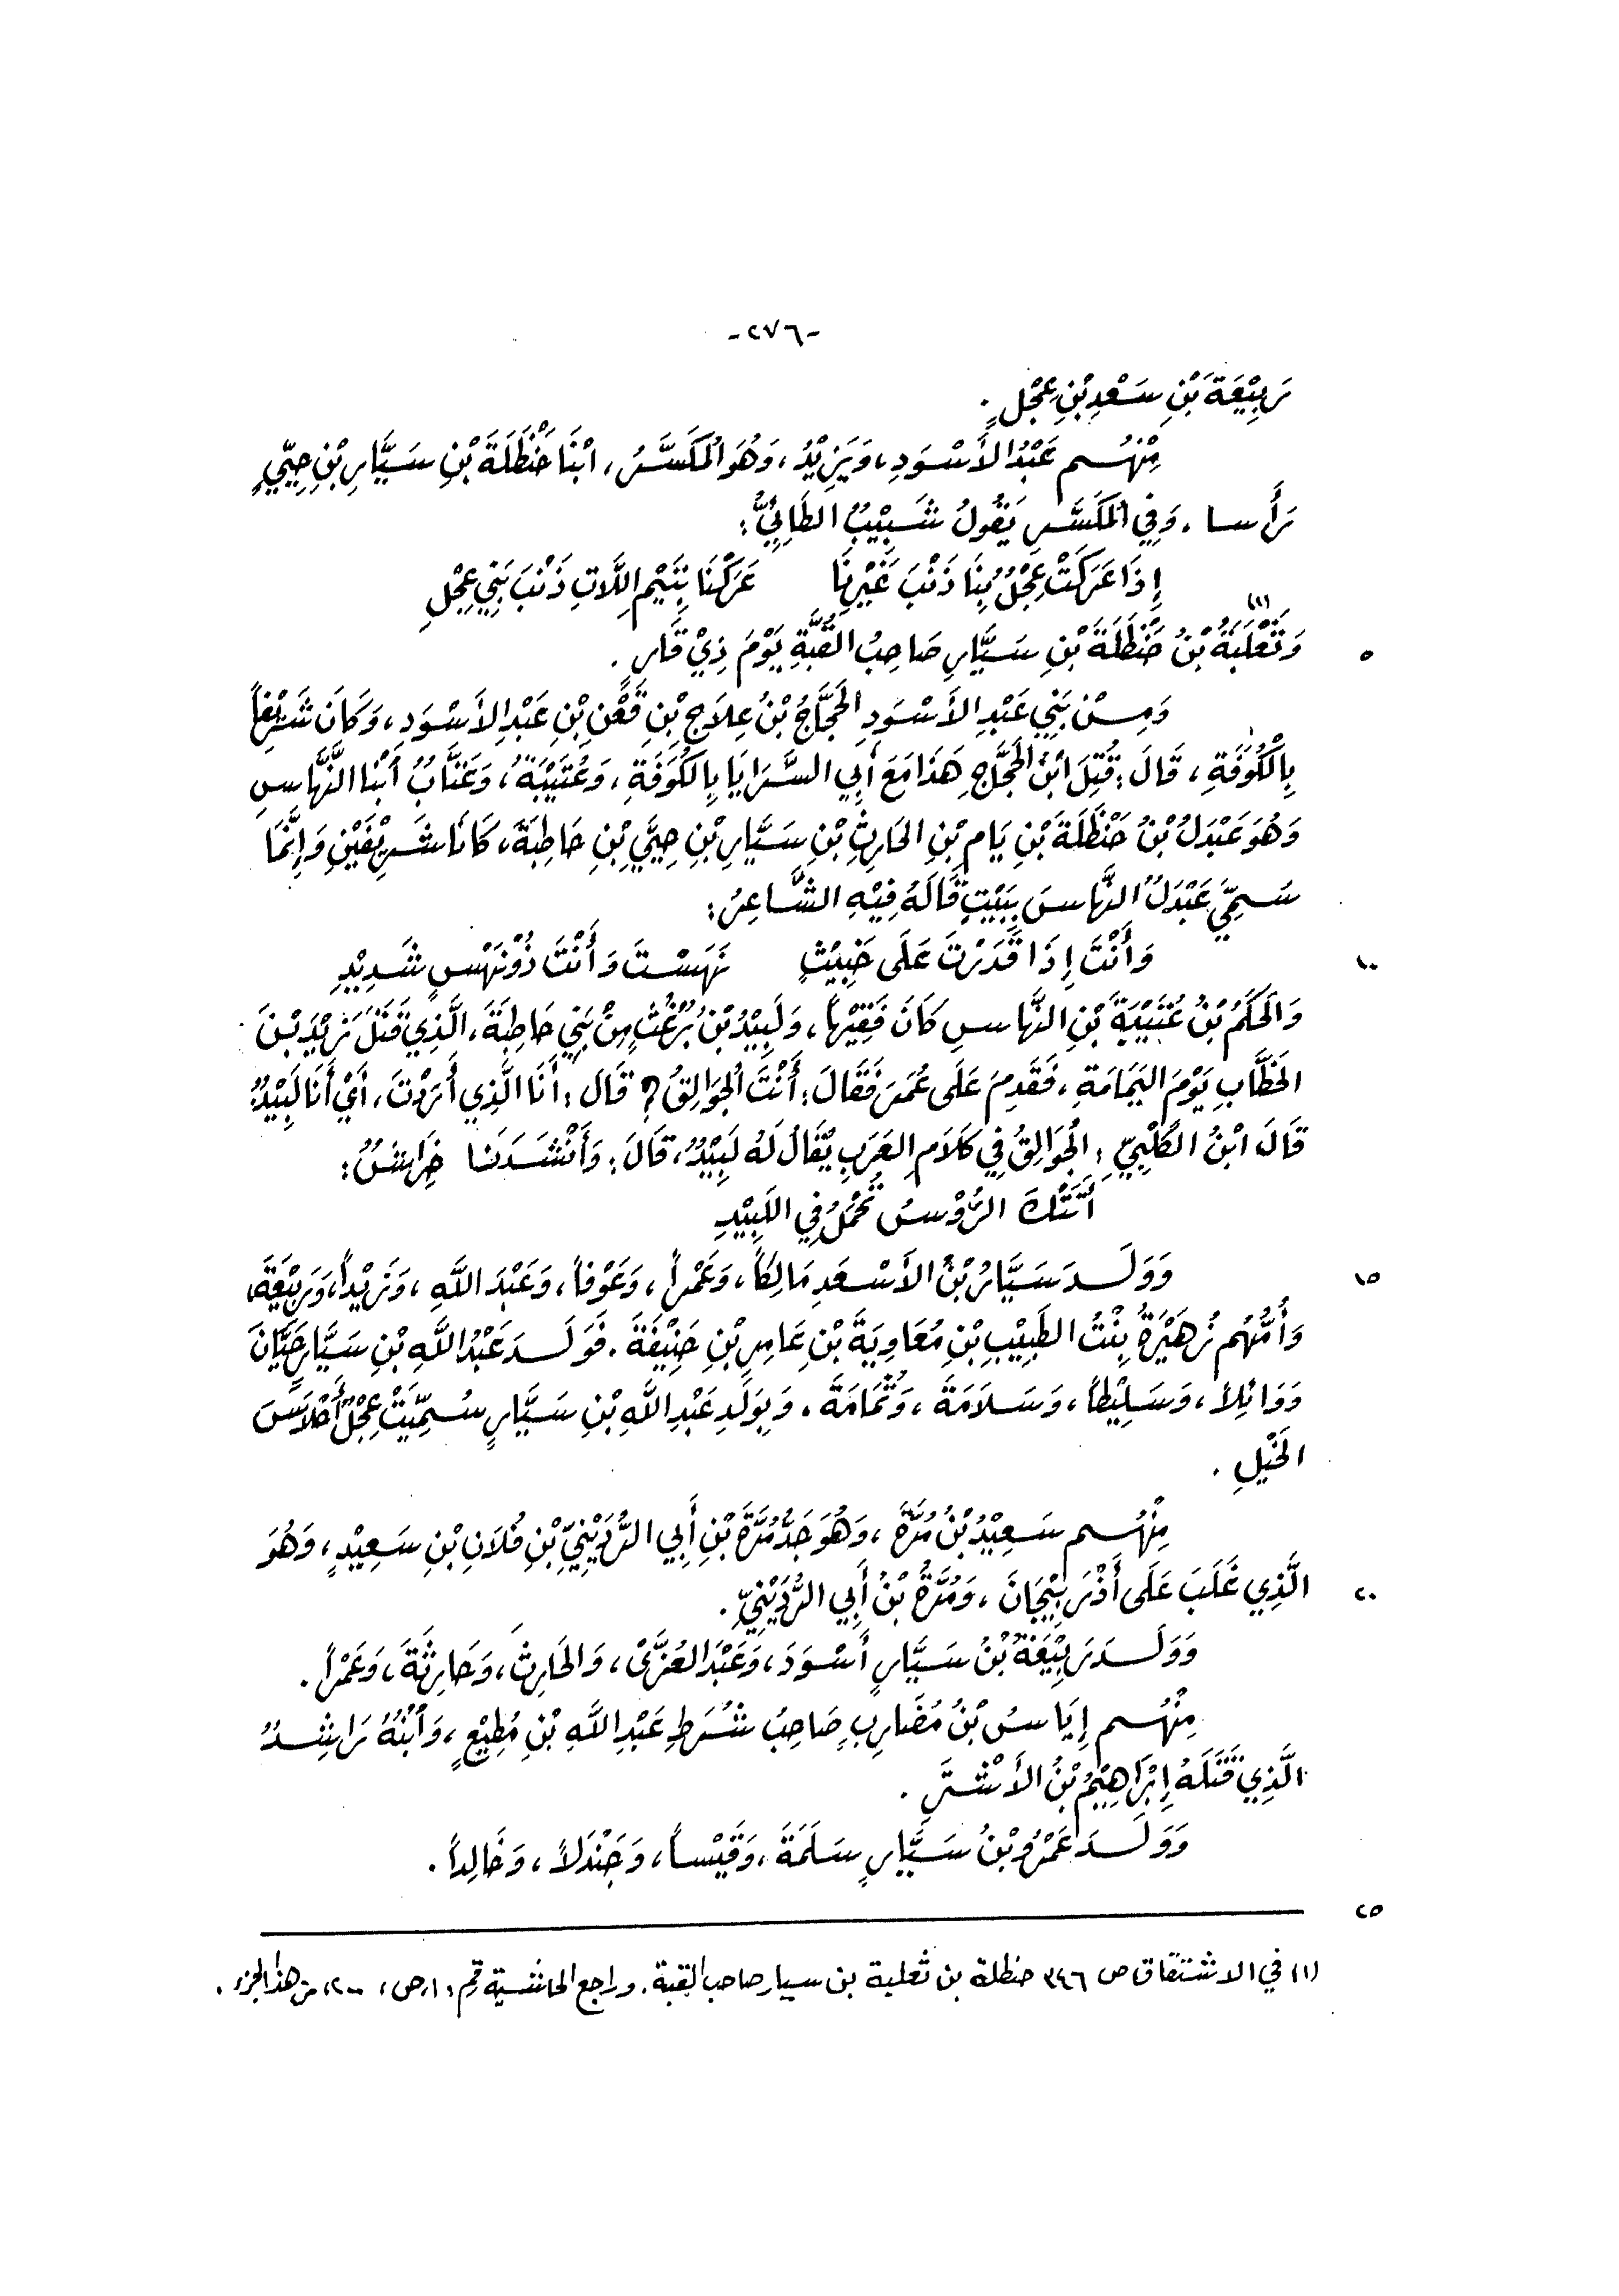 -٢٧٦-
رَبِيْعَةَ بْنِ سَعْدِ بْنِ عِجْلٍ .
مِنْهُم عَبْدُ الأَسْوَدِ، وَيَزِيْدُ، وَهُوَ المُكَسَّرُ، ابْنَا حَنْظَلَةَ بْنِ سَيَّارِ بْنِ حِيَيٍّ
رَأَسا . وَفِي المُكَسَّرِ يَقُولُ شَبِيْبٌ الطَائِيُّ :
إِذَا عَرَكَتْ عِجْلٌ بِنَا ذَنْبَ غَيْرِنَا عَرَكْنَا بِتَيْمِ اللَّاتِ ذَنْبَ بَنِي عِجْلِ
(١)
٥ وَثَعْلَبَةُ بْنُ حَنْظَلَةَ بْنِ سَيَّارِ صَاحِبُ القُبَّةِ يَوْمَ ذِيْ قَارٍ .
وَمِنْ بَنِي عَبْدِ الأَسْوَدِ الحَجَّاجُ بْنُ عِلَاجِ بْنِ قَعْنِ بْنِ عَبْدِ الأَسْوَدِ، وَكَانَ شَرِيْفاً
بِالْكُوفَةِ ، قَالَ : قُتِلَ ابْنُ الحَجَّاجِ هَذَا مَعَ أَبِي السَّرَايَا بِالكُوفَةِ ، وَعُتَيْبَةُ ، وَعَتَّابٌ ابْنا النَّهَّاسِ
وَهُوَ عَبْدَلُ بْنُ حَنْظَلَةَ بْنِ يَامِ بْنِ الحَارِثِ بْنِ سَيَّارِ بْنِ حِيَيِّ بْنِ حَاطِبَةَ، كَانَا شَرِيْفَيْنِ وَإِنَّمَا
سُمِّيَ عَبْدَلُ النَّهَّاسَ بِبَيْتٍ قَالَهُ فِيْهِ الشَّاعِرُ :
١٠ وَأَنْتَ إِذَا قَدَرْتَ عَلَى خَبِيْثٍ نَهَسْتَ وَأَنْتَ ذُوْ نَهْسٍ شَدِيْدِ
وَالحَكَمُ بْنُ عُتَيْبَةَ بْنِ النَّهَّاسِ كَانَ فَقِيْهاً ، وَلَبِيْدُ بْنُ بُرْغُثٍ مِنْ بَنِي حَاطِبَةَ ، الَّذِي قَتَلَ زَيْدَ بْنَ
الخَطَّابِ يَوْمَ اليَمَامَةِ ، فَقَدِمَ عَلَى عُمَرَ فَقَالَ : أَنْتَ الجُوَالِقُ ؟ قَالَ : أَنَا الَّذِي أَرَدْتَ، أَيْ أَنَا لَبِيْدٌ
قَالَ ابْنُ الكَلْبِيِّ : الجُوَالِقُ فِي كَلَامِ العَرَبِ يُقَالُ لَهُ لَبِيْدٌ، قَالَ : وَأَنْشَدَنا خِرَاشٌ :
أَتَتْكَ الرُّؤْسُ تُحْمَلُ فِي اللَّبِيْدِ
١٥ وَوَلَدَ سَيَّارُ بْنُ الأَسْعَدِ مَالِكاً، وَعَمْراً ، وَعَوْفاً، وَعَبْدَ اللَّهِ ، وَزَيْداً، وَرَبِيْعَةَ،
وَأُمُّهُم زُهَيْرَةُ بِنْتُ الطَّبِيْبِ بْنِ مُعَاوِيَةَ بْنِ عَامِرِ بْنِ حَنِيْفَةَ . فَوَلَدَ عَبْدُ اللَّهِ بْنِ سَيَّارٍ حَيَّانَ
وَوَائِلاً ، وَسَلِيْطاً ، وَسَلَامَةَ ، وَثُمَامَةَ . وَبِوَلَدِ عَبْدِ اللَّهِ بْنِ سَيَّارٍ سُمِّيَتْ عِجْلٌ أَحْلَاسَ
الخَيْلِ .
مِنْهُم سَعِيْدُ بْنُ مُرَّةَ ، وَهُوَ جَدُّ مُرَّةَ بْنِ أَبِي الرُّدَيْنِيِّ بْنِ فُلَانِ بْنِ سَعِيْدٍ ، وَهُوَ
٢٠ الَّذِي غَلَبَ عَلَى أَذْرَبِيْجَانَ ، وَمُرَّةُ بْنُ أَبِي الرُّدَيْنِيِّ .
وَوَلَدَ رَبِيْعَةُ بْنُ سَيَّارٍ أَسْوَدَ، وَعَبْدَ العُزَّىْ ، وَالحَارِثَ ، وَحَارِثَةَ، وَعَمْراً .
مِنْهُم إِيَاسُ بْنُ مُضَارِبٍ صَاحِبُ شُرَطِ عَبْدِ اللَّهِ بْنِ مُطِيْعٍ ، وَابْنُهُ رَاشِدٌ
الَّذِي قَتَلَهُ إِبْرَاهِيْمُ بْنُ الأَشْتَرِ .
وَوَلَدَ عَمْرُو بْنُ سَيَّارٍ سَلَمَةَ ، وَقَيْساً ، وَجَنْدَلاً ، وَخَالِداً .
٢٥
(١) في الاشتقاق ص ٣٤٦ حنظلة بن ثعلبة بن سيار صاحب القبة . وراجع الحاشية رقم ،١، ص، ٢٠٠، من هذا الجزء .